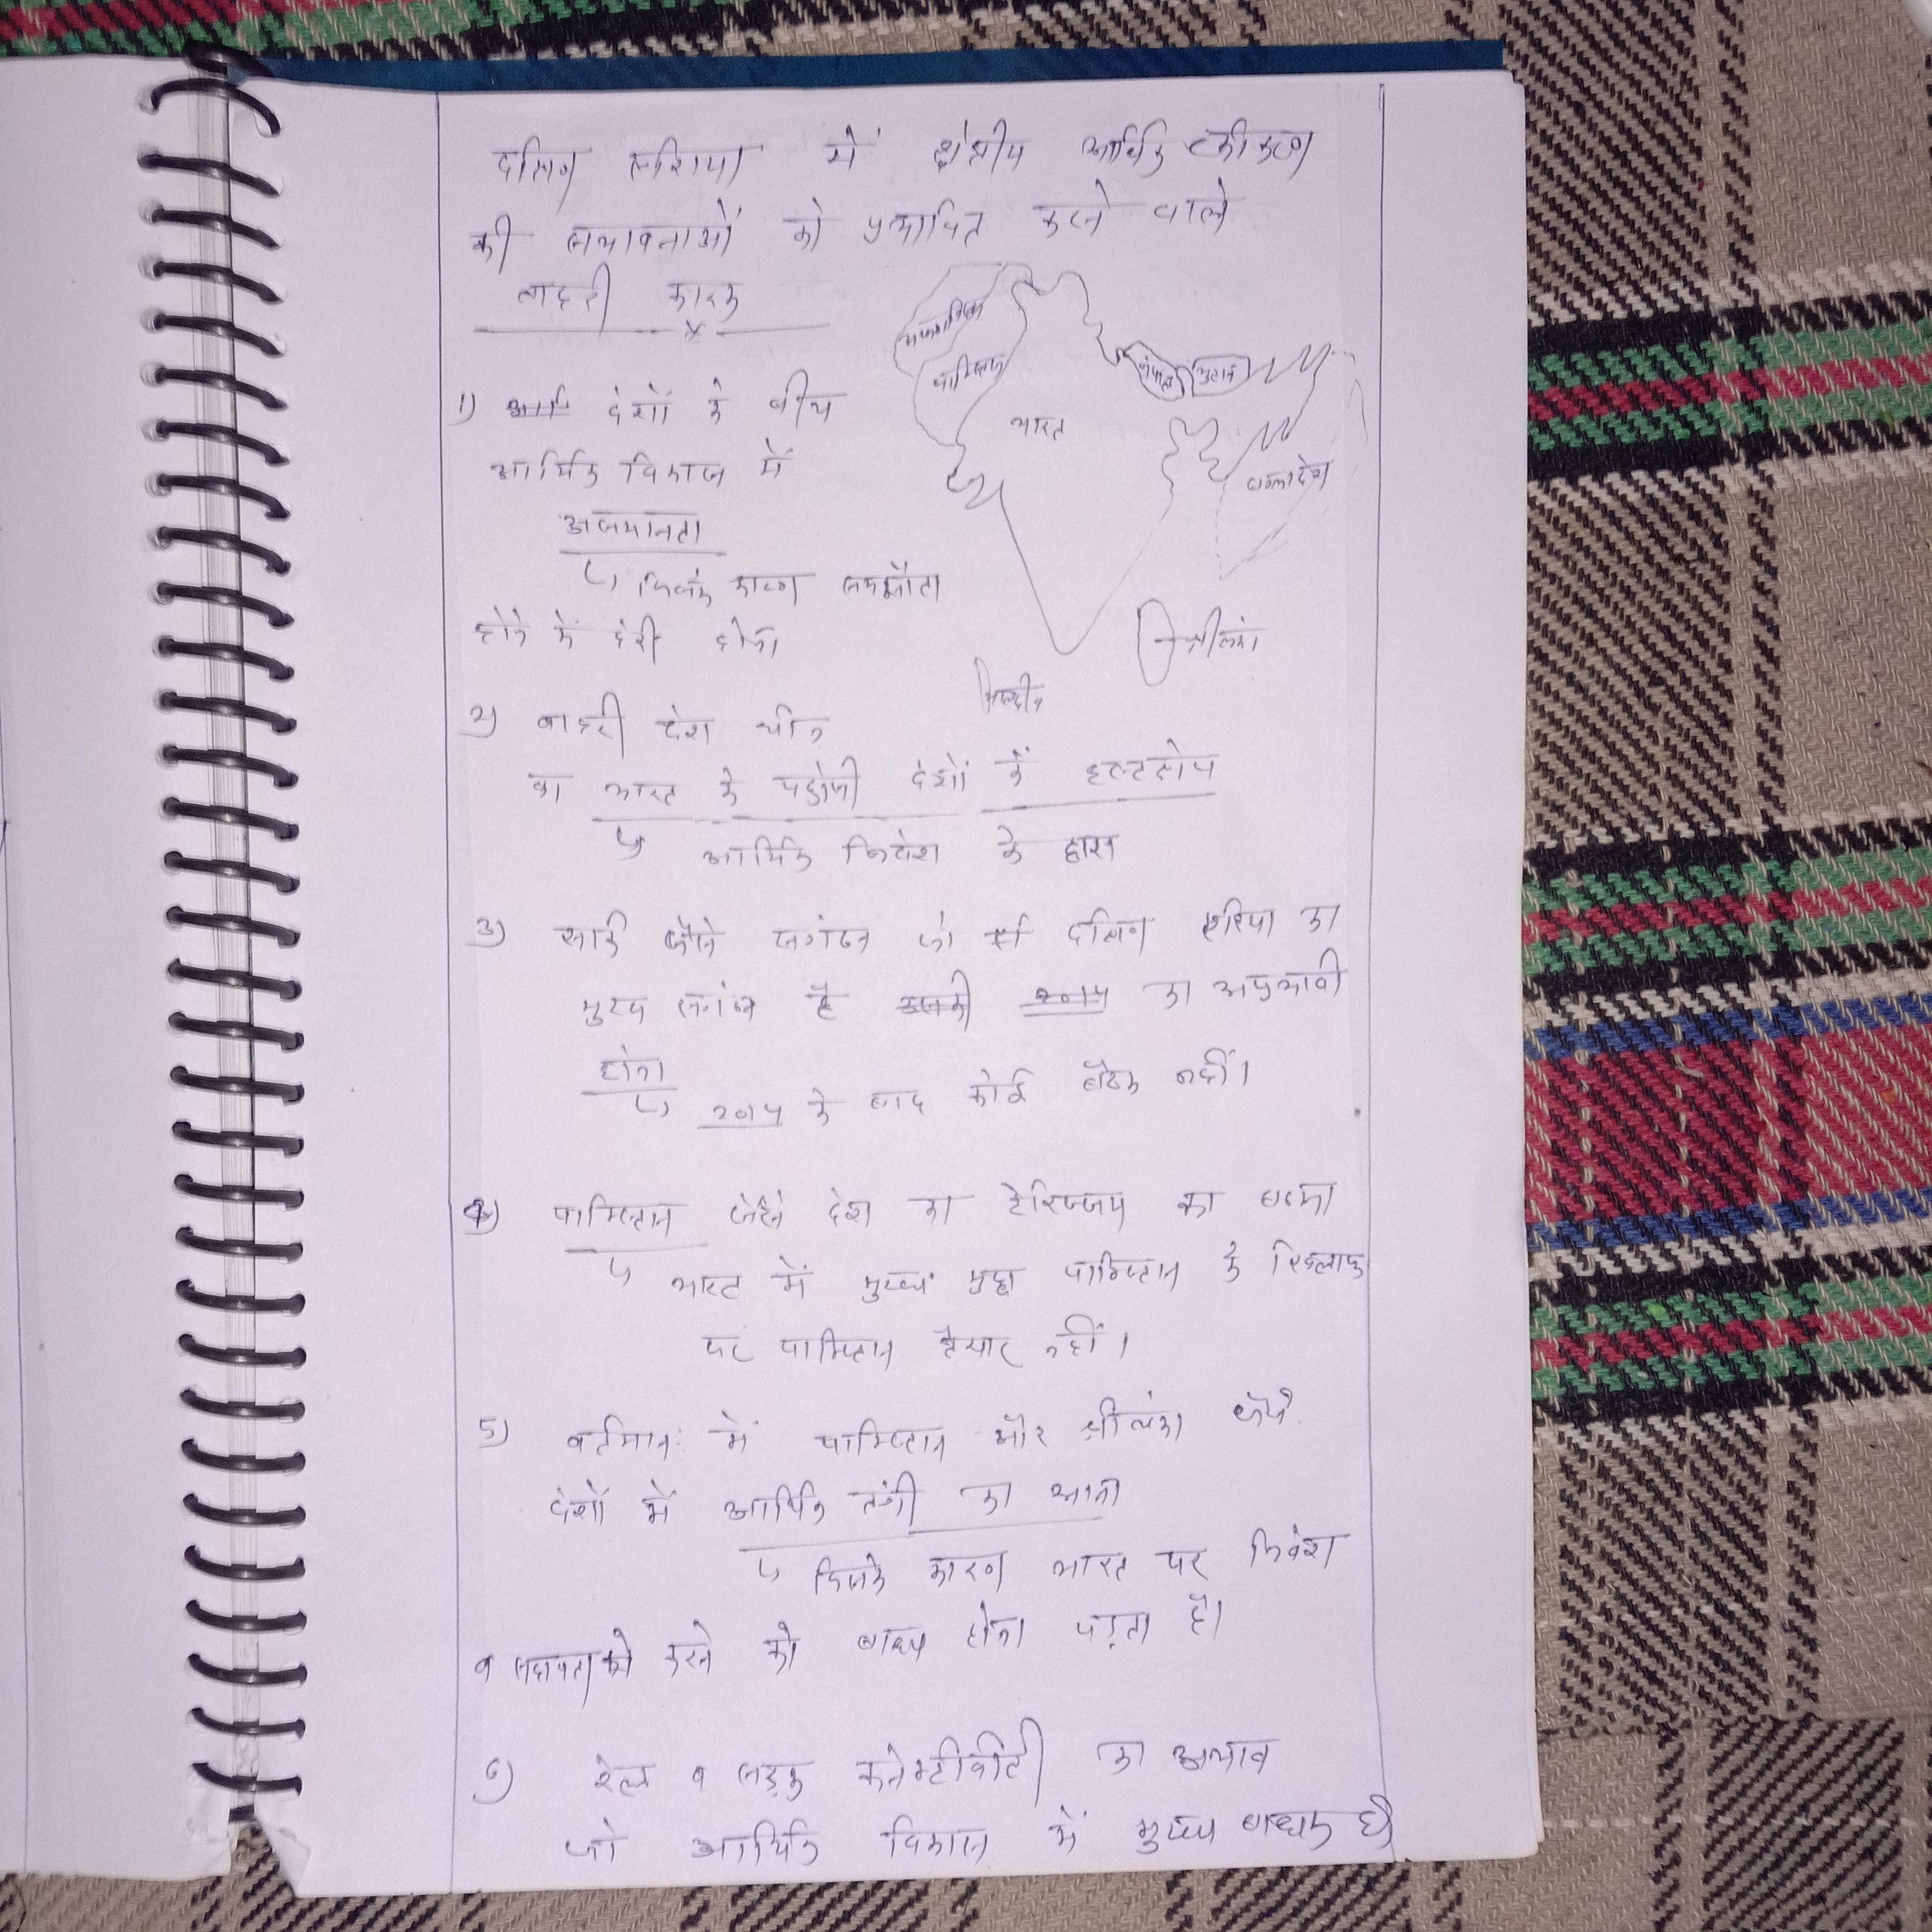 दक्षिण एशिया में क्षेत्रीय आर्थिक एकीकरण
की सम्भावनाओं को प्रभावित करने वाले
बाहरी कारक
अफगानिस्तान
पाकिस्तान
नेपाल
भुटान
भारत
बांग्लादेश
श्रीलंका
मालदीव
1) देशों के बीच
आर्थिक विकास में
असमानता
↳ जिसके कारण समझौता
होने में देरी होना
2) बाहरी देश चीन
का भारत के पड़ोसी देशों में हस्तक्षेप
↳ आर्थिक निवेश के द्वारा
3) सार्क जैसे संगठन जो दक्षिण एशिया का
मुख्य संगठन है का अप्रभावी
होना
↳ 2014 के बाद कोई बैठक नहीं।
4) पाकिस्तान जैसे देश का टेरिज्जम का
↳ भारत में मुख्य मुद्दा पाकिस्तान के खिलाफ
पर पाकिस्तान तैयार नहीं।
5) वर्तमान में पाकिस्तान और श्रीलंका जैसे
देशों में आर्थिक तंगी का आना
↳ जिसके कारण भारत पर निवेश
व सहायता करने को बाध्य होना पड़ता है।
6) रेल व सड़क कनेक्टीवीटी का अभाव
जो आर्थिक विकास में मुख्य बाधक है